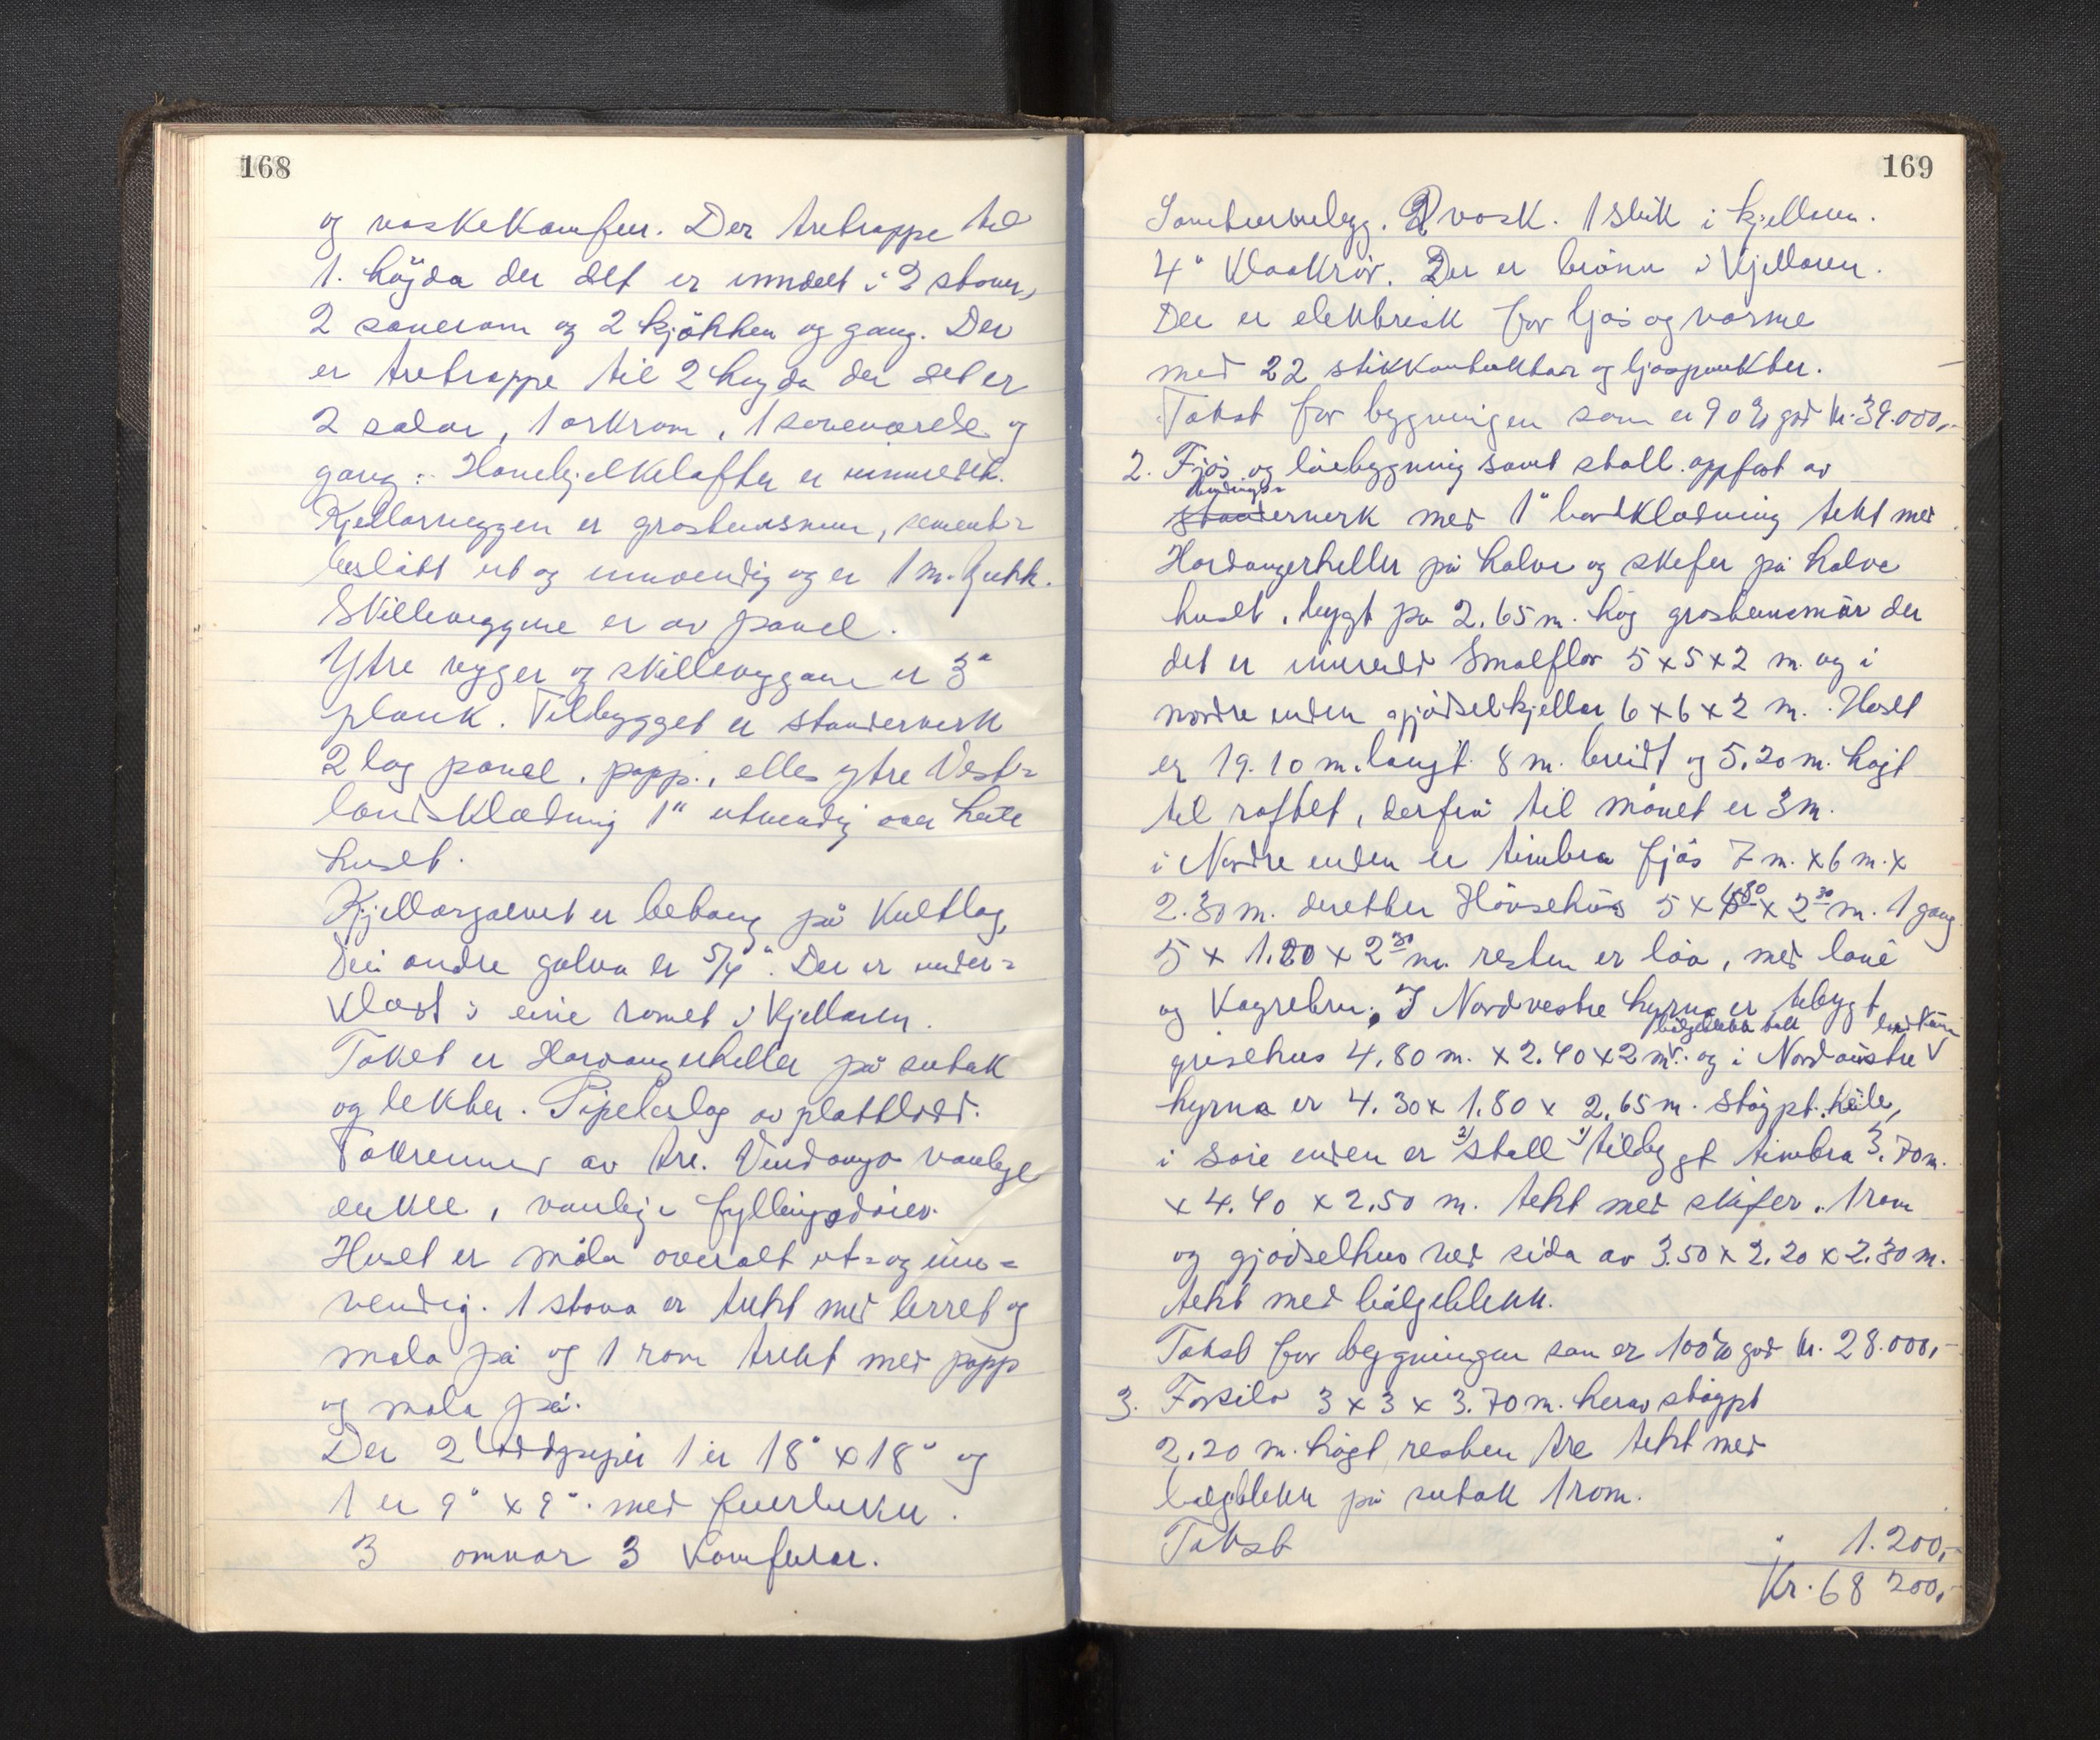 168
og vaskekomfur. Der tretrappe til
1. höjda der det er inndelt i 2 stover,
2 soverom og 2 kjökken og gang. Der
er tretrappe til 2 høgda der det er
2 salar, 1 arkrom, 1 soveværelse og
gang. Hanebjelkeloftet er uinnreidt.
Kjellarveggen er grosteinsmur, sement-
beslått ut og innvendig og er 1 m. tjukk.
Skilleveggine er av panel.
Ytre vegger og skilleveggene er 3"
plank. Tilbygget er standerverk
2 lag panel, papp., elles ytre Vest-
landskledning 1" utvendig over heile
huset.
Kjellargolvet er betong på Kultlag,
Dei andre golva er 5/4". Der er under-
kledt i eine romet i Kjellaren.
Taket er Hardangerheller på sutak
og lekter. Pipebeslag av plattlodd.
Takrenner av tre. Vindauga vanlege
enkle, vanlige fyllingsdører.
Huset er måla overalt ut- og inn-
vendig. 1 stova er trekt med lerret og
mala på og 1 rom trekt med papp
og mala på.
Der 2 piper 1 er 18" x 18" og
1 er 9" x 9". med
3 omnar 3 Komfurar.
169
vask. 1 slik i kjellaren.
4" Kloakkrör. Der er brönn i Kjellaren.
Der er elektrisk for ljos og varme
med 22 stikkontaktar og ljospunkter.
Takst for bygningen som er 90% god kr. 39.000,-
2. Fjös og löebygning samt stall oppført av
bindings-
standerverk med 1" bordkledning tekt med
Hardangerheller på halve og skefer på halve
huset, bygt på 2,65 m. høg grosteinsmúr der
det er innreidd Smalflor 5 x 5 x 2 m. og i
nordre enden gjødselkjellar 6 x 6 x 2 m. Huset
er 19.10 m. langt. 8 m. breidt og 5.20 m. høgt
til raftet, derfrå til mönet er 3 m.
i Nordre enden er timbra fjös 7 m. x 6 m. x
2.30 m. deretter Hönsehus 5 x 4.80 x 2.30 m. 1 gang
5 x 1.20 x 2.30 m. resten er löa, med
og Køyrebru. I Nordvestre hyrna er tebygt
bølgeblekk tekt
grisehus 4,80 m. x 2.40 x 2 m. og i Nordaustre
hyrna er 4.30 x 1.80 x 2,65 m. støypt.
i søre enden er 2) stall 1) tilbygt timbra 3,70 m.
x 4.40 x 2.50 m. tekt med skifer. 1 rom
og gjødselhus ved sida av 3.50 x 2.20 x 2.30 m.
tekt med bölgeblekk.
Takst for bygningen som er 100% god kr. 28.000,-
3. Forsilo 3 x 3 x 3.70 m. herav støypt
2,20 m. høgt resten tre tekt med
bølgeblekk på sutak 1 rom.
Takst " 1.200,-
Kr. 68 200,-